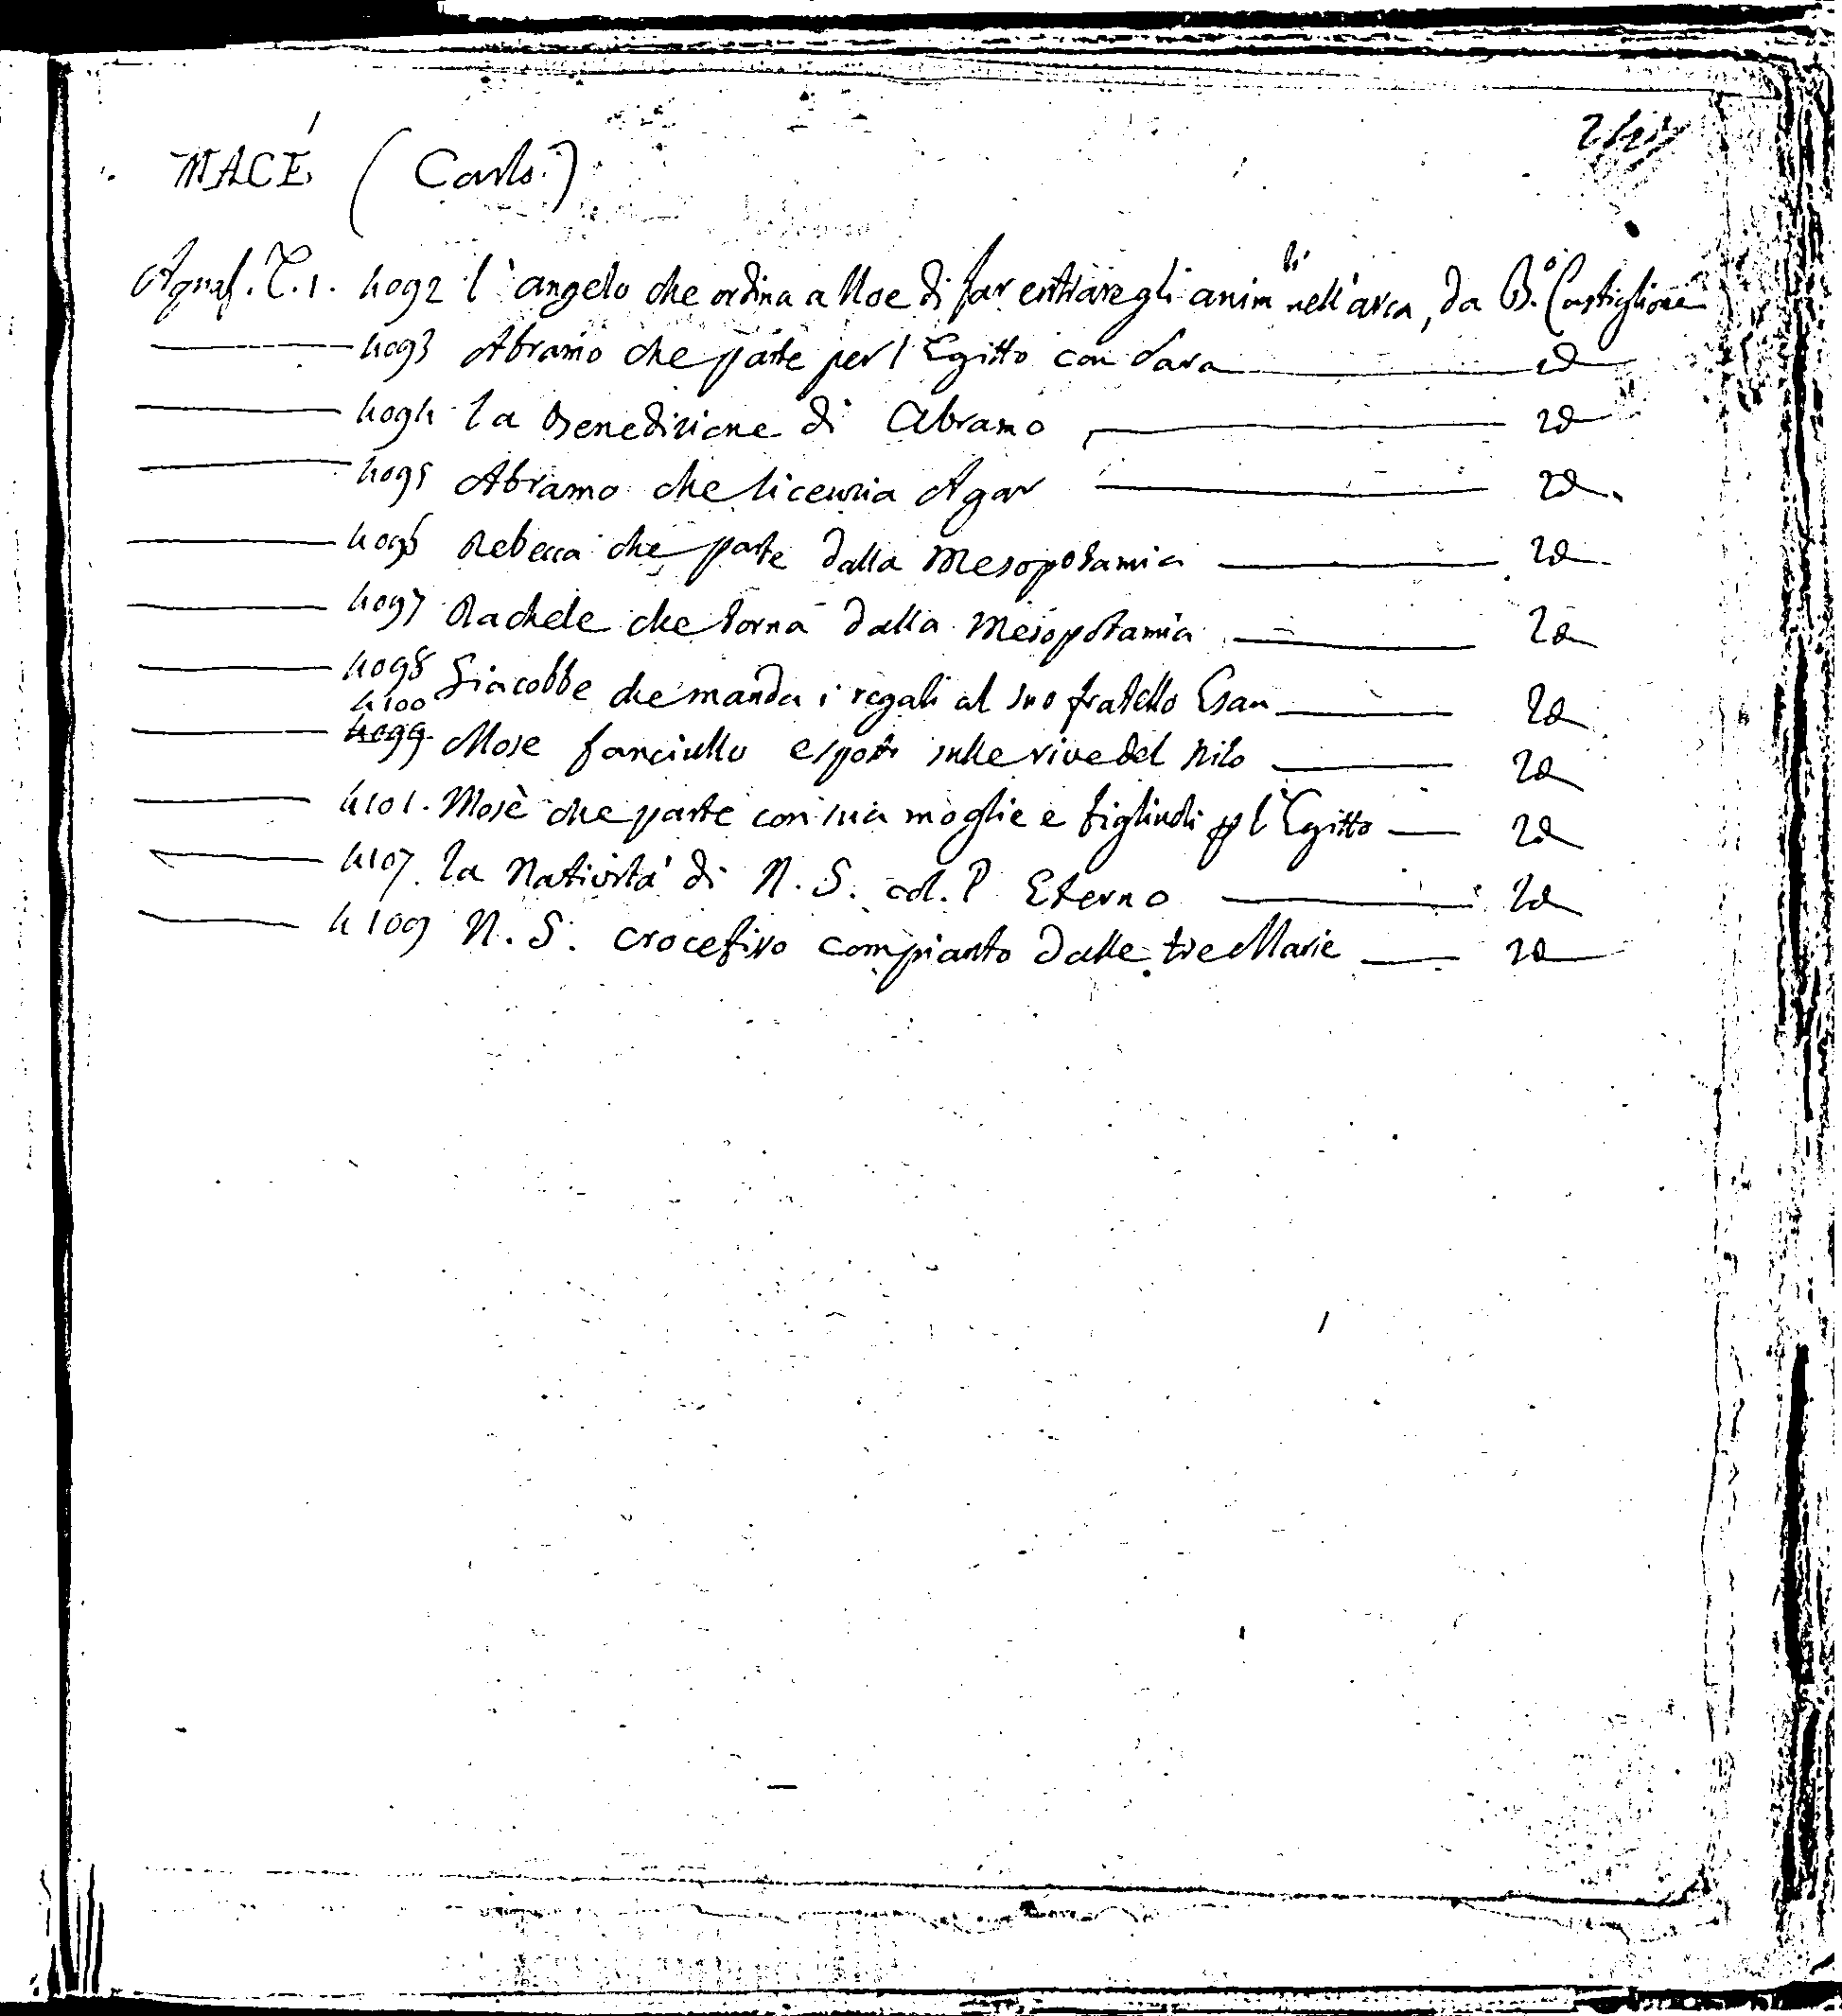 MACÉ (Carlo.)
Aquaf. T. 1. 4092 l'angelo che ordina a Noe di far entrare gli anim.li nell'arca, da B.o Castiglione
4093 Abramo che parte per l Egitto con Sara id
4094 la Benedizione di Abramo id
4095 Abramo che licenzia Agar id.
4096 Rebecca che parte dalla Mesopotamia id
4097 Rachele che torna dalla Mesopotamia id
4098 Giacobbe che manda i regali al suo fratello Esau id
4100
4099 Mose fanciullo esposto sulle rive del Nilo id
4101. Mosè che parte con sua moglie e figliuoli p l'Egitto id
4107. la Natività di N. S. col. P Eterno id
4109 N. S. crocefisso compianto dalle tre Marie id